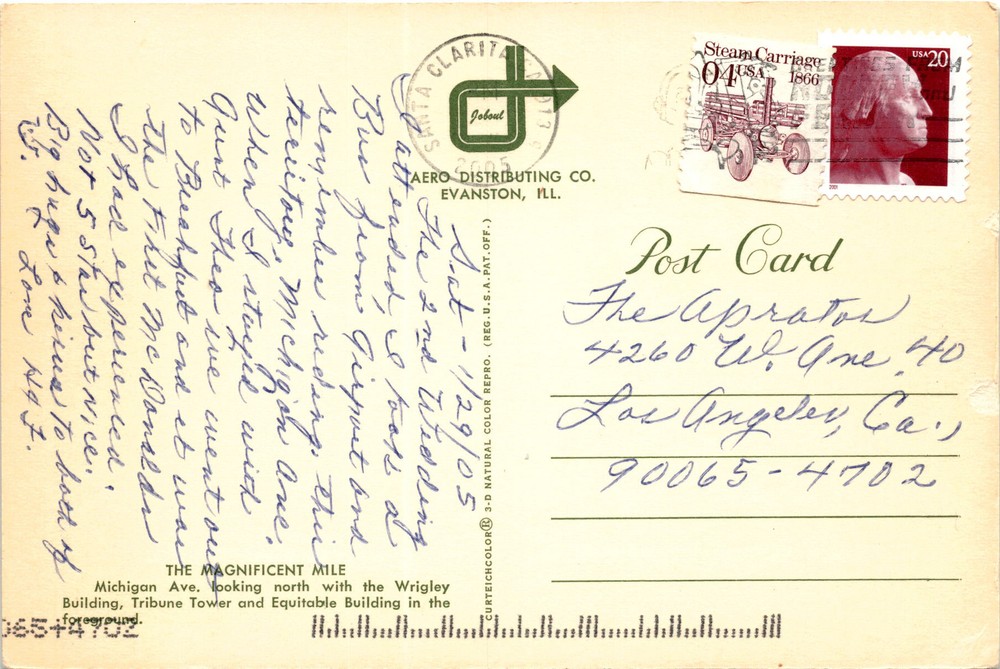 Sat - 1/29/05
The 2nd Wedding
I attended I took a
Bus from Airport and
remember riding this
territory. Michigan Ave.
When I stayed with
Aunt Theo we went out
to Breakfast and it was
the First McDonalds
I had experienced.
Not 5 Star but nice.
Big hugs & kisses to both of
U. Love
SANTA CLARITA CA 913
2005
Joboul
AERO DISTRIBUTING CO.
EVANSTON, ILL.
Steam Carriage
04 USA 1866
USA 20
2001
Post Card
The Apratos
4260 W. Ave. 40
Los Angeles, Ca.,
90065-4702
CURTEICHCOLOR® 3-D NATURAL COLOR REPRO. (REG. U.S.A. PAT. OFF.)
THE MAGNIFICENT MILE
Michigan Ave. looking north with the Wrigley
Building, Tribune Tower and Equitable Building in the
foreground.
065+4702